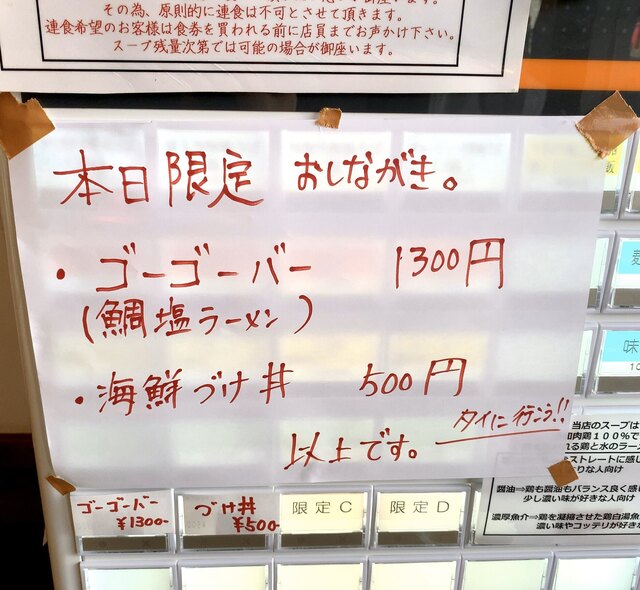 その為、原則的に連食は不可とさせて頂きます。
連食希望のお客様は食券を買われる前に店員までお声かけ下さい。
スープ残量次第では可能の場合が御座います。
本日限定 おしながき。
・ゴーゴーバー 1300円
(鯛塩ラーメン)
・海鮮づけ丼 500円
以上です。
タイに行こう!!
ゴーゴーバー
¥1300-
づけ丼
¥500-
限定C
限定D
味
当店のスープは
肉鶏100%で
れる鶏と水のラー
ストレートに感じ
りな人向け
醤油⇒鶏も醤油もバランス良く感じ
少し濃い味が好きな人向け
濃厚魚介⇒鶏を凝縮させた鶏白湯魚
濃い味やコッテリが好きな